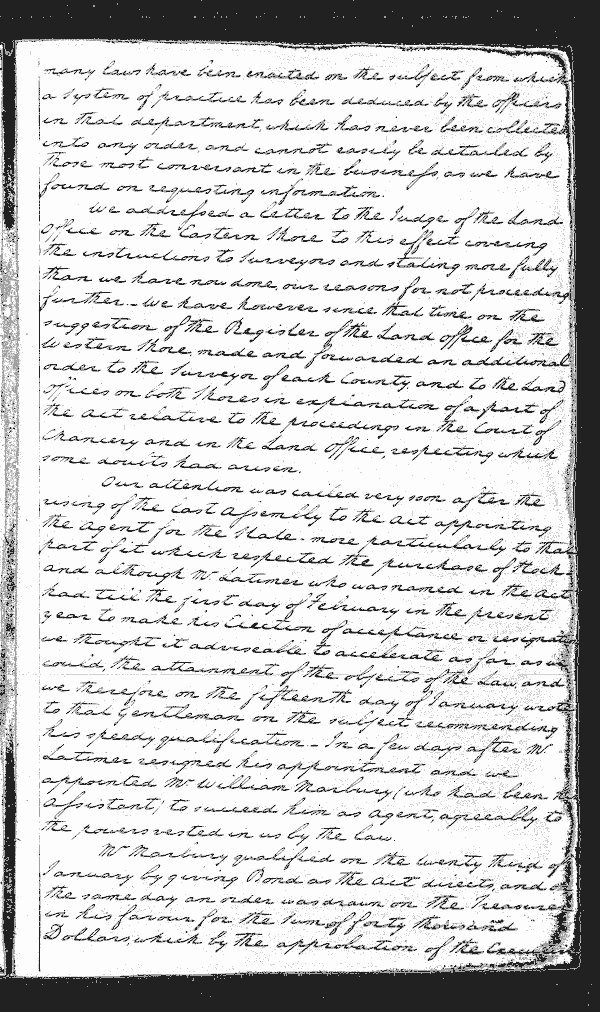 many laws have been enacted on the subject from which
a system of practice has been deduced by the officers
in that department, which has never been collected
into any order, and cannot easily be detailed by
those most conversant in the business, as we have
found on requesting information.
We addressed a letter to the Judge of the Land
Office on the Eastern Shore to this effect covering
the instructions to Surveyors and stating more fully
than we have now done, our reasons for not proceeding
further. - We have however since that time on the
suggestion of the Register of the Land office for the
Western Shore, made and forwarded an additional
order to the Surveyor of each County, and to the Land
offices on both Shores in explanation of a part of
the Act relative to the proceedings in the Court of
Chancery and in the Land Office, respecting which
some doubts had arisen.
Our attention was called very soon after the
rising of the last Assembly to the Act appointing
the Agent for the State - more particularly to that
part of it which respected the purchase of Stock -
and although Mr Latimer who was named in the Act
had till the first day of February in the present
year to make his Election of acceptance or
we thought it adviseable to accelerate as far as we
could, the attainment of the objects of the Law, and
we therefore on the fifteenth day of January wrote
to that Gentleman on the subject recommending
his speedy qualification - In a few days after Mr
Latimer resigned his appointment and we
appointed Mr William Marbury (who had been
Assistant) to succeed him as Agent, agreeably to
the powers vested in us by the law.
Mr Marbury qualified on the twenty third of
January by giving Bond as the Act directs, and on
the same day an order was drawn on the Treasurer
in his favour for the sum of forty thousand
Dollars, which by the approbation of the